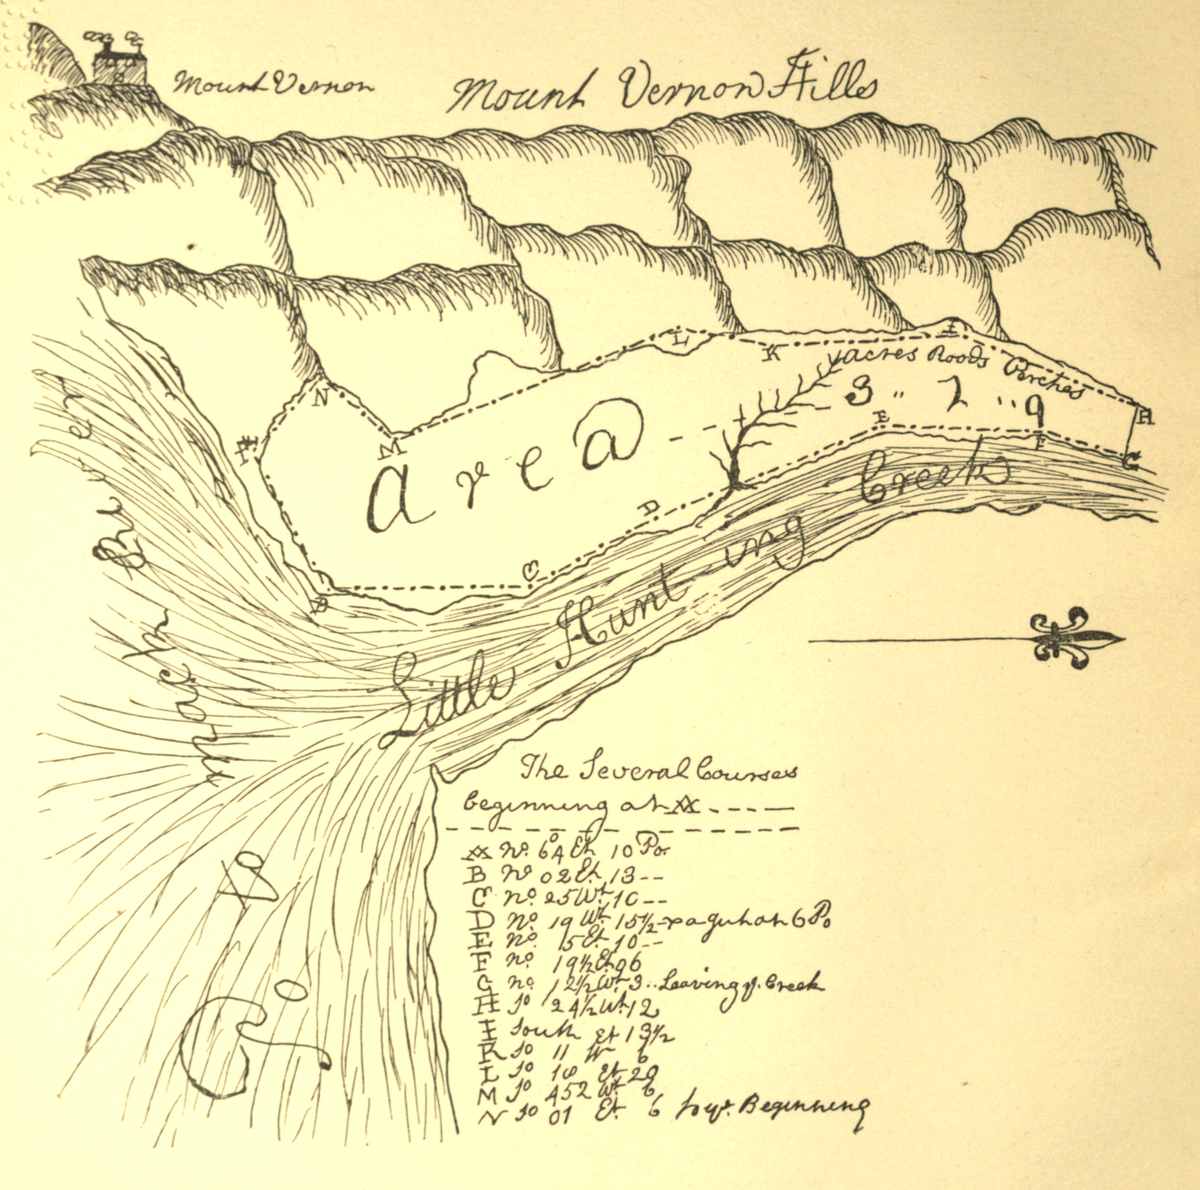 Mount Vernon
Mount Vernon Hills
L
I
K
acres Roods Perches
N
H
3 ,, 2 ,, 9
M
E
F
G
area
Creek
River
D
ing
C
Hunt
B
Little
march
The Several Courses
beginning at A
A No. 64 Et. 10 Po.
B No 02 Et. 13
C No. 25 Wt. 10
D No. 19 Wt. 15½ 6 Po
E No. 15 Et. 10
F No 19½ Et.
G No. 12½ Wt. 3 .. Leaving ye. Creek
H So 24½ Wt 12
I South Et 13½
K So 11 W 6
L So Et 20
M So 452 Wt. 6
N So 01 Et. 6 to ye. Beginning